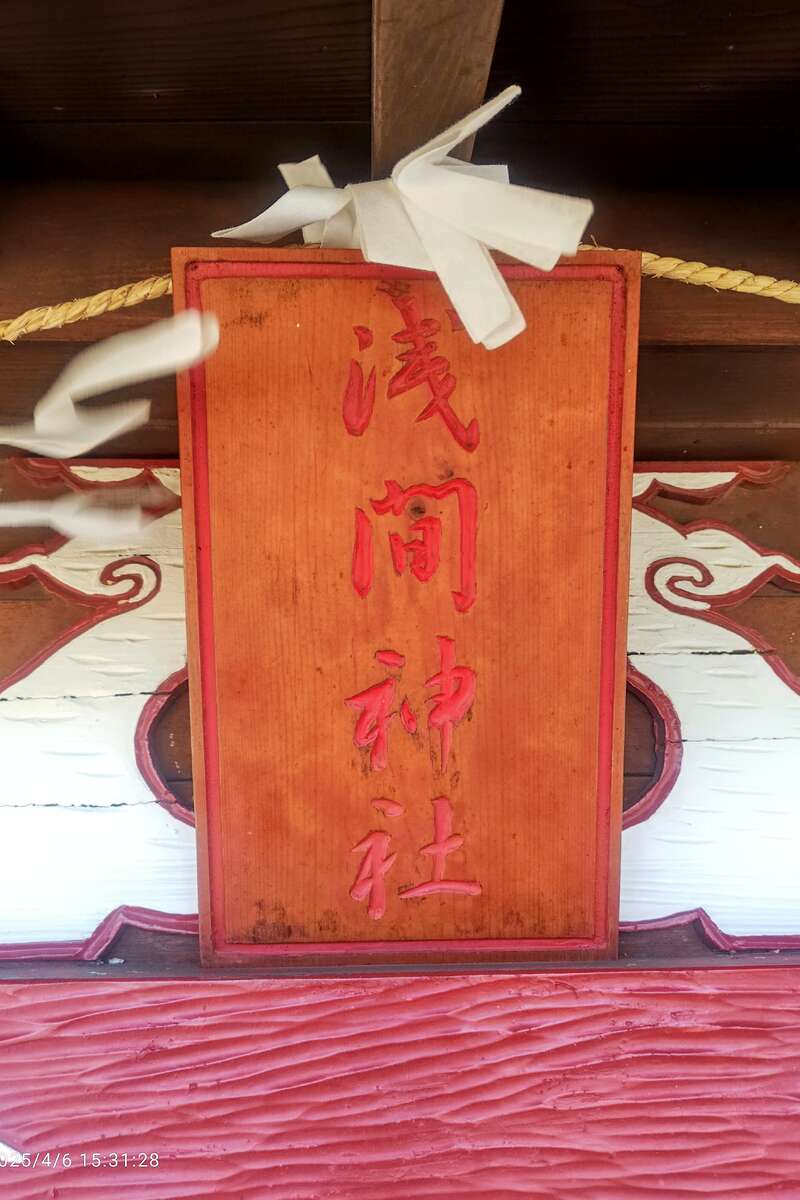 浅間神社
025/4/6 15:31:28